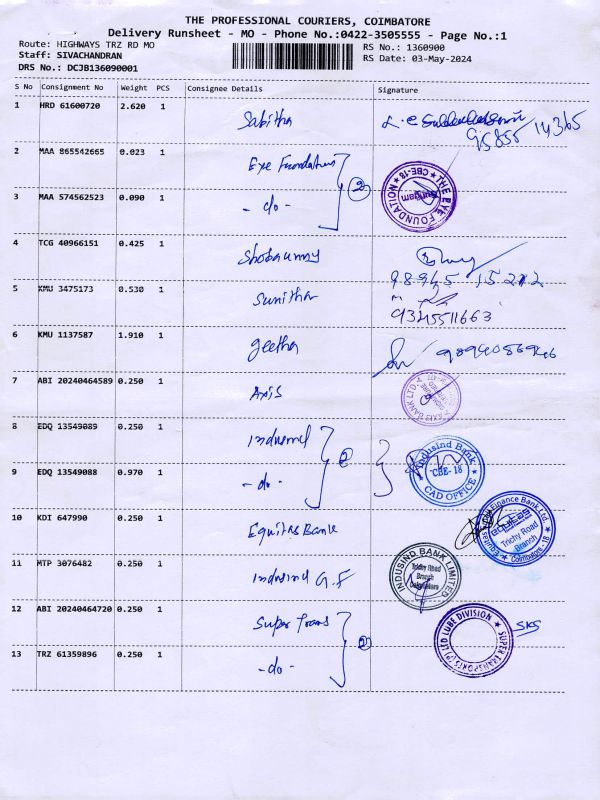 THE PROFESSIONAL COURIERS, COIMBATORE
Delivery Runsheet - MO - Phone No.:0422-3505555 - Page No.:1
Route: HIGHWAYS TRZ RD MO
RS No.: 1360900
Staff: SIVACHANDRAN
RS Date: 03-May-2024
DRS No.: DCJB136090001
S No Consignment No Weight PCS Consignee Details Signature
1 HRD 61600720 2.620 1 Sabitha
95855 14365
2 MAA 865542665 0.023 1 Eye Foundation
THE EYE FOUNDATION CBE-18
3 MAA 574562523 0.090 1 - do - 2
4 TCG 40966151 0.425 1
5 KMU 3475173 0.530 1 Sunitha
9345511663
6 KMU 1137587 1.910 1 Geetha
7 ABI 20240464589 0.250 1 Axis
AXIS BANK LTD.
8 EDQ 13549089 0.250 1 Indusind
Indusind Bank CBE-18 CAD OFFICE
9 EDQ 13549088 0.970 1 - do - 2
10 KDI 647990 0.250 1 Equitas Bank
Equitas Small Finance Bank Ltd. Trichy Road Branch Coimbatore - 18
11 MTP 3076482 0.250 1 Indusind G.F
INDUSIND BANK LIMITED Trichy Road Branch Coimbatore
12 ABI 20240464720 0.250 1 Super Trans
SUPER TRANSPORTS (P) LTD LUBE DIVISION
SKS
13 TRZ 61359896 0.250 1 - do - 2